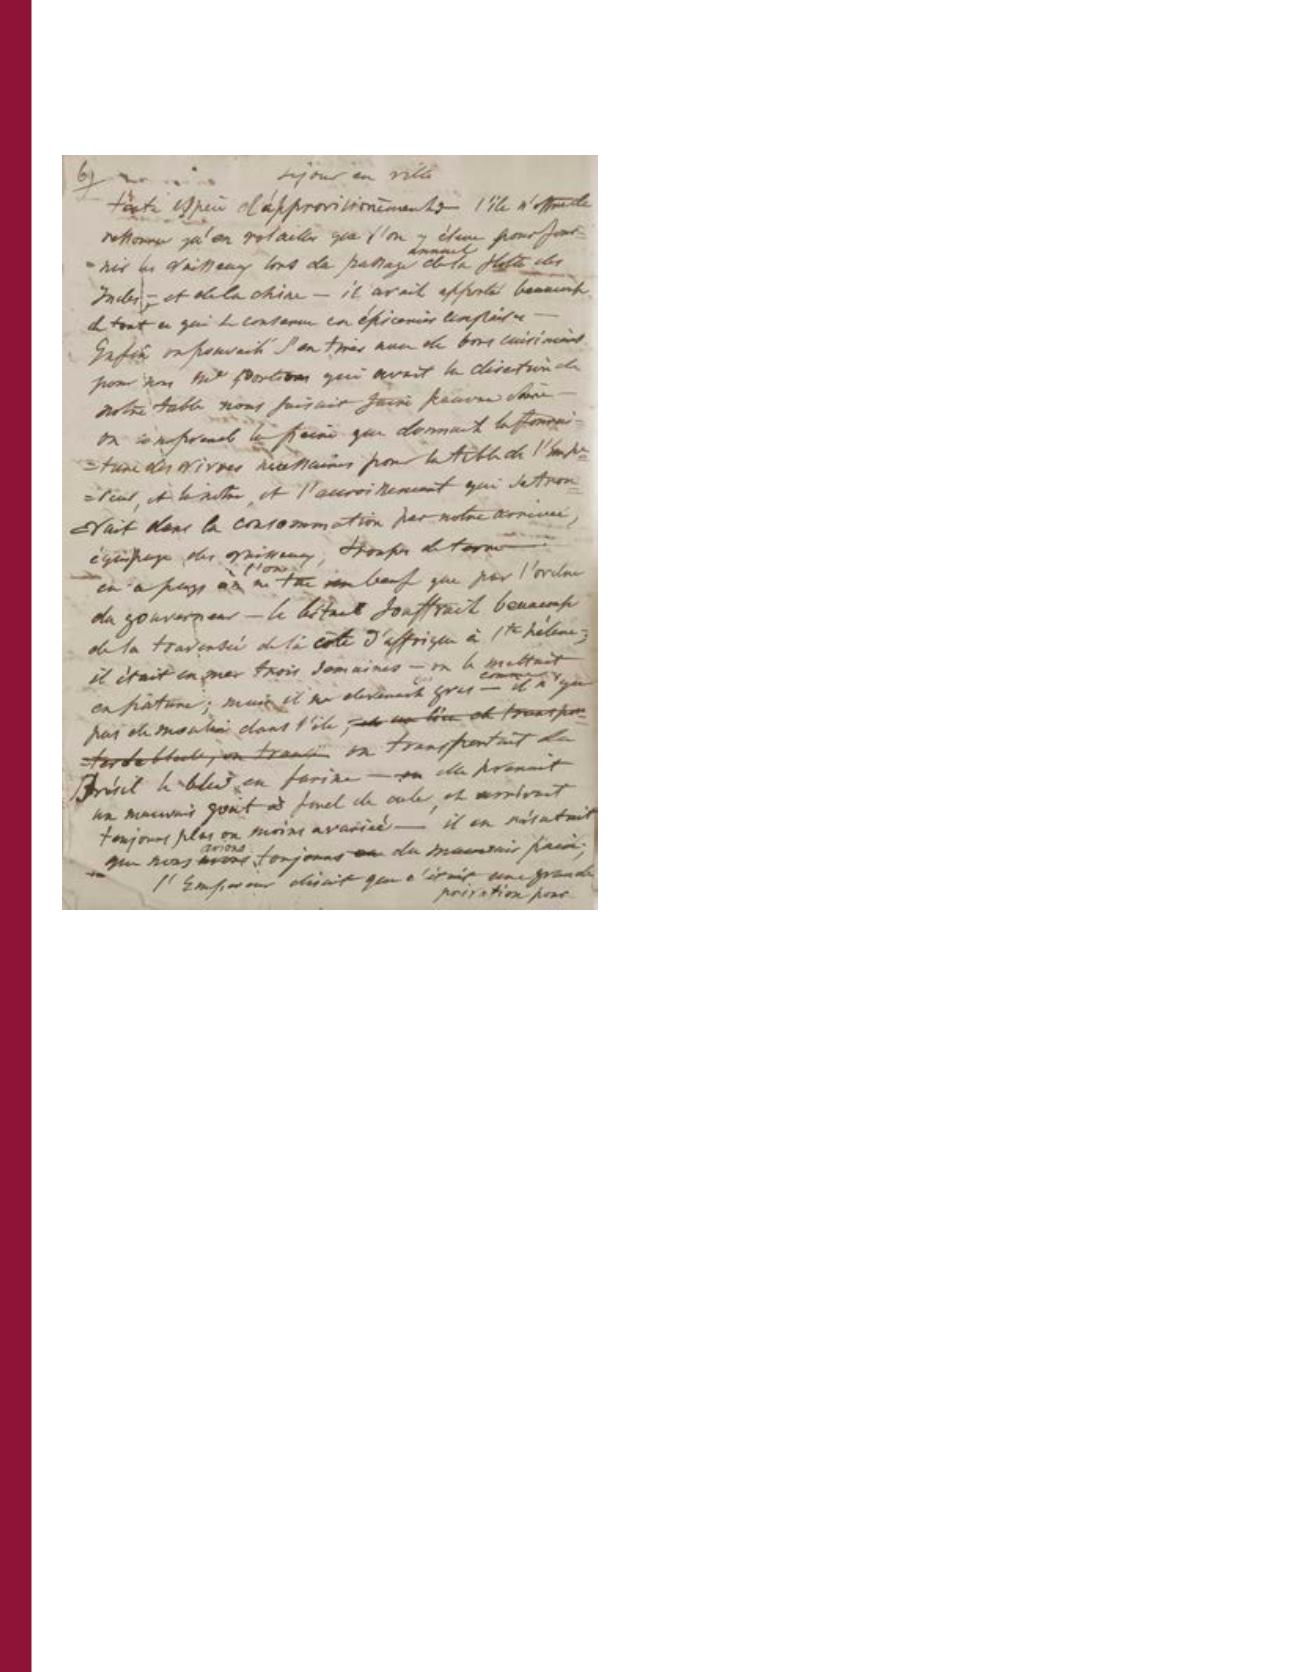 6) séjour en ville
toute espèce d'approvisionements l'île n'offre de
ressource qu'en volailles que l'on y élève pour four=
=nir les vaisseaux lors du passage annuel de la flotte des
Indes, et de la chine — il avait apporté beaucoup
de tout ce qui se conserve en épiceries
Enfin on pouvait s'en tirer avec de bons cuisiniers
pour nous Mr qui avait la direction de
notre table nous faisait faire pauvre chère —
on comprend la peine que donnait la fourni=
=ture des vivres nécessaires pour la table de l'Empe=
=reur, et la notre, et l'accroissement qui se trou=
=vait dans la consommation par notre arrivée,
équipage des vaisseaux, troupes de terre
en a pays où l'on ne tue un bœuf que par l'ordre
du gouverneur — le bétail souffrait beaucoup
de la traversée de la côte d'affrique à Ste hélène;
il était en mer trois semaines — on le mettait
en pâture; mais il ne devenait gras — comme il n'y a
pas de moulin dans l'île, et au lieu de transpor=
=ter de bleds, on transportait du
Brésil le bled en farine — elle prenait
un mauvais goût à fond de cale, et arrivait
toujours plus ou moins avariée — il en résultait
que nous avions toujours du mauvais pain;
l'Empereur disait que c'était une grande
privation pour